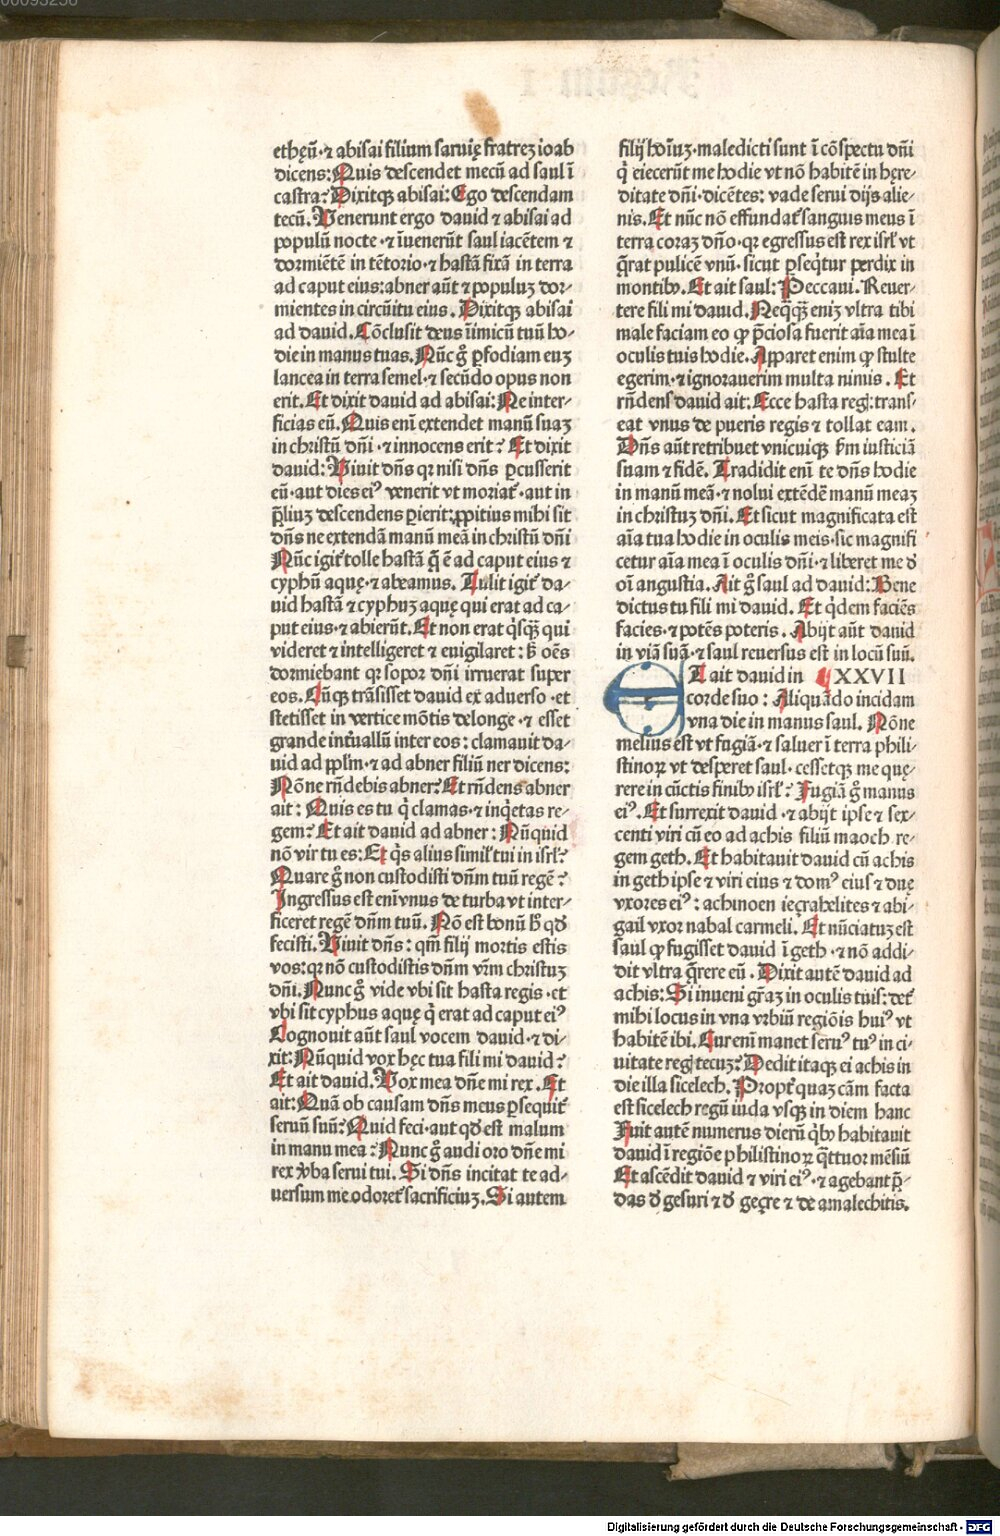 ethęū·⁊ abisai filium saruię fratreꝫ ioab
dicens: Quis descendet mecū ad saul ī
castra? Dixitqꝫ abisai: Ego descendam
tecū. Venerunt ergo dauid ⁊ abisai ad
populū nocte·⁊ īuenerūt saul iacētem ⁊
dormiētē in tētorio·⁊ hastā fixā in terra
ad caput eius: abner aūt ⁊ populuꝫ dor⸗
mientes in circūitu eius. Dixitqꝫ abisai
ad dauid. Cōclusit deus īimicū tuū ho⸗
die in manus tuas. Nūc gͦ ꝑfodiam euꝫ
lancea in terra semel·⁊ secūdo opus non
erit. Et dixit dauid ad abisai: Ne inter⸗
ficias eū. Quis enī extendet manū suaꝫ
in christū dn̄i·⁊ innocens erit? Et dixit
dauid: Viuit dn̄s qꝛ nisi dn̄s ꝑcusserit
eū·aut dies eiꝰ venerit vt moriat᷑·aut in
p̄liuꝫ descendens ꝑierit: ꝓpitius mihi sit
dn̄s ne extendā manū meā in christū dn̄i
Nūc igit᷑ tolle hastā q̄ ē ad caput eius ⁊
cyphū aquę·⁊ abeamus. Tulit igit᷑ da⸗
uid hastā ⁊ cyphuꝫ aquę qui erat ad ca⸗
put eius·⁊ abierūt. Et non erat q̇sq̄ꝫ qui
videret ⁊ intelligeret ⁊ euigilaret: sꝫ oēs
dormiebant qꝛ sopor dn̄i irruerat super
eos. Cūqꝫ trāsisset dauid ex aduerso·et
stetisset in vertice mōtis de longe·⁊ esset
grande int̓uallū inter eos: clamauit da⸗
uid ad ppl̄m·⁊ ad abner filiū ner dicens:
Nōne rn̄debis abner? Et rn̄dens abner
ait: Quis es tu q̇ clamas·⁊ inq̇etas re⸗
gem? Et ait dauid ad abner: Nūquid
nō vir tu es: Et q̇s alius simil̓ tui in isrl̓?
Quare gͦ non custodisti dn̄m tuū regē?
Ingressus est enī vnus de turba vt inter⸗
ficeret regē dn̄m tuū. Nō est bonū hͦ qd̓
fecisti. Viuit dn̄s: qm̄ filij mortis estis
vos: qꝛ nō custodistis dn̄m vr̄m christuꝫ
dn̄i. Nunc gͦ vide vbi sit hasta regis·et
vbi sit cyphus aquę q̇ erat ad caput eiꝰ
Cognouit aūt saul vocem dauid·⁊ di⸗
xit: Nūquid vox hęc tua fili mi dauid?
Et ait dauid. Vox mea dn̄e mi rex. Et
ait: Quā ob causam dn̄s meus ꝑsequit᷑
seruū suū? Quid feci·aut qd̓ est malum
in manu mea? Nunc gͦ audi oro dn̄e mi
rex v̓ba serui tui. Si dn̄s incitat te ad⸗
uersum me·odoret᷑ sacrificiuꝫ. Si autem
filij hoīuꝫ·maledicti sunt ī cōspectu dn̄i
q̇ eiecerūt me hodie vt nō habitē in hęre⸗
ditate dn̄i·dicētes: vade serui dijs alie⸗
nis. Et nūc nō effundat᷑ sanguis meus ī
terra coraꝫ dn̄o·qꝛ egressus est rex isrl̓ vt
q̄rat pulicē vnū·sicut ꝑseq̇tur perdix in
montibꝰ. Et ait saul: Peccaui. Reuer⸗
tere fili mi dauid. Neq̄q̄ꝫ eniꝫ vltra tibi
male faciam eo ꝙ p̄ciosa fuerit aīa mea ī
oculis tuis hodie. Apparet enim ꝙ stulte
egerim·⁊ ignorauerim multa nimis. Et
rn̄dens dauid ait: Ecce hasta reg̓: trans⸗
eat vnus de pueris regis ⁊ tollat eam.
Dn̄s aūt retribuet vnicuiqꝫ sm̄ iusticiā
suam ⁊ fidē. Tradidit enī te dn̄s hodie
in manū meā·⁊ nolui extēdē manū meaꝫ
in christuꝫ dn̄i. Et sicut magnificata est
aīa tua hodie in oculis meis·sic magnifi
cetur aīa mea ī oculis dn̄i·⁊ liberet me d̓
oī angustia. Ait gͦ saul ad dauid: Bene
dictus tu fili mi dauid. Et q̇dem faciēs
facies·⁊ potēs poteris. Abijt aūt dauid
in viā suā·⁊ saul reuersus est in locū suū.
ET ait dauid in ¶ XXVII
corde suo: Aliquādo incidam
vna die in manus saul. Nōne
melius est vt fugiā·⁊ saluer ī terra phili⸗
stinoꝝ vt desperet saul·cessetqꝫ me quę⸗
rere in cūctis finibꝰ isrl̓? Fugiā gͦ manus
eiꝰ. Et surrexit dauid·⁊ abijt ipse ⁊ sex⸗
centi viri cū eo ad achis filiū maoch re⸗
gem geth. Et habitauit dauid cū achis
in geth ipse ⁊ viri eius ⁊ domꝰ eius ⁊ duę
vxores eiꝰ: achinoen ieçrahelites ⁊ abi⸗
gail vxor nabal carmeli. Et nūciatuꝫ est
saul ꝙ fugisset dauid ī geth·⁊ nō addi⸗
dit vltra q̄rere eū. Dixit autē dauid ad
achis: Si inueni gr̄aꝫ in oculis tuis: det᷑
mihi locus in vna vrbiū regiōis huiꝰ vt
habitē ibi. Cur eni manet seruꝰ tuꝰ in ci⸗
uitate reg̓ tecuꝫ? Dedit itaqꝫ ei achis in
die illa sicelech. Propt̓ quaꝫ cām facta
est sicelech regū iuda vsqꝫ in diem hanc
Fuit autē numerus dierū q̇bꝰ habitauit
dauid ī regiōe philistinoꝝ q̄ttuor mēsiū
Et ascēdit dauid ⁊ viri eiꝰ·⁊ agebant p̄⸗
das d̓ gesuri ⁊ d̓ geçre ⁊ de amalechitis.
Digitalisierung gefördert durch die Deutsche Forschungsgemeinschaft - DFG